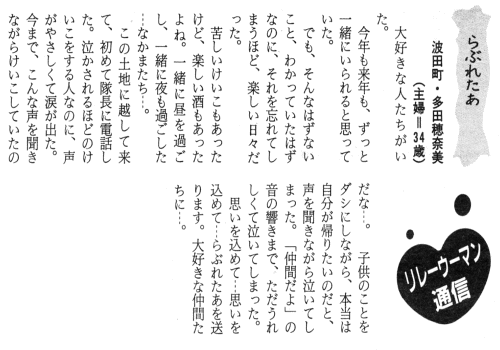 らぶれたあ
波田町・多田穂奈美
（主婦＝34歳）
大好きな人たちがい
た。
今年も来年も、ずっと
一緒にいられると思って
いた。
でも、そんなはずない
こと、わかっていたはず
なのに、それを忘れてし
まうほど、楽しい日々だ
った。
苦しいけいこもあった
けど、楽しい酒もあった
よね。一緒に昼を過ごし
し、一緒に夜も過ごした
…なかまたち…。
この土地に越して来
て、初めて隊長に電話し
た。泣かされるほどのけ
いこをする人なのに、声
がやさしくて涙が出た。
今まで、こんな声を聞き
ながらけいこしていたの
だな…。　子供のことを
ダシにしながら、本当は
自分が帰りたいのだと、
声を聞きながら泣いてし
まった。「仲間だよ」の
音の響きまで、ただうれ
しくて泣いてしまった。
思いを込めて…思いを
込めて…らぶれたあを送
ります。大好きな仲間た
ちに…。
リレーウーマン
通信